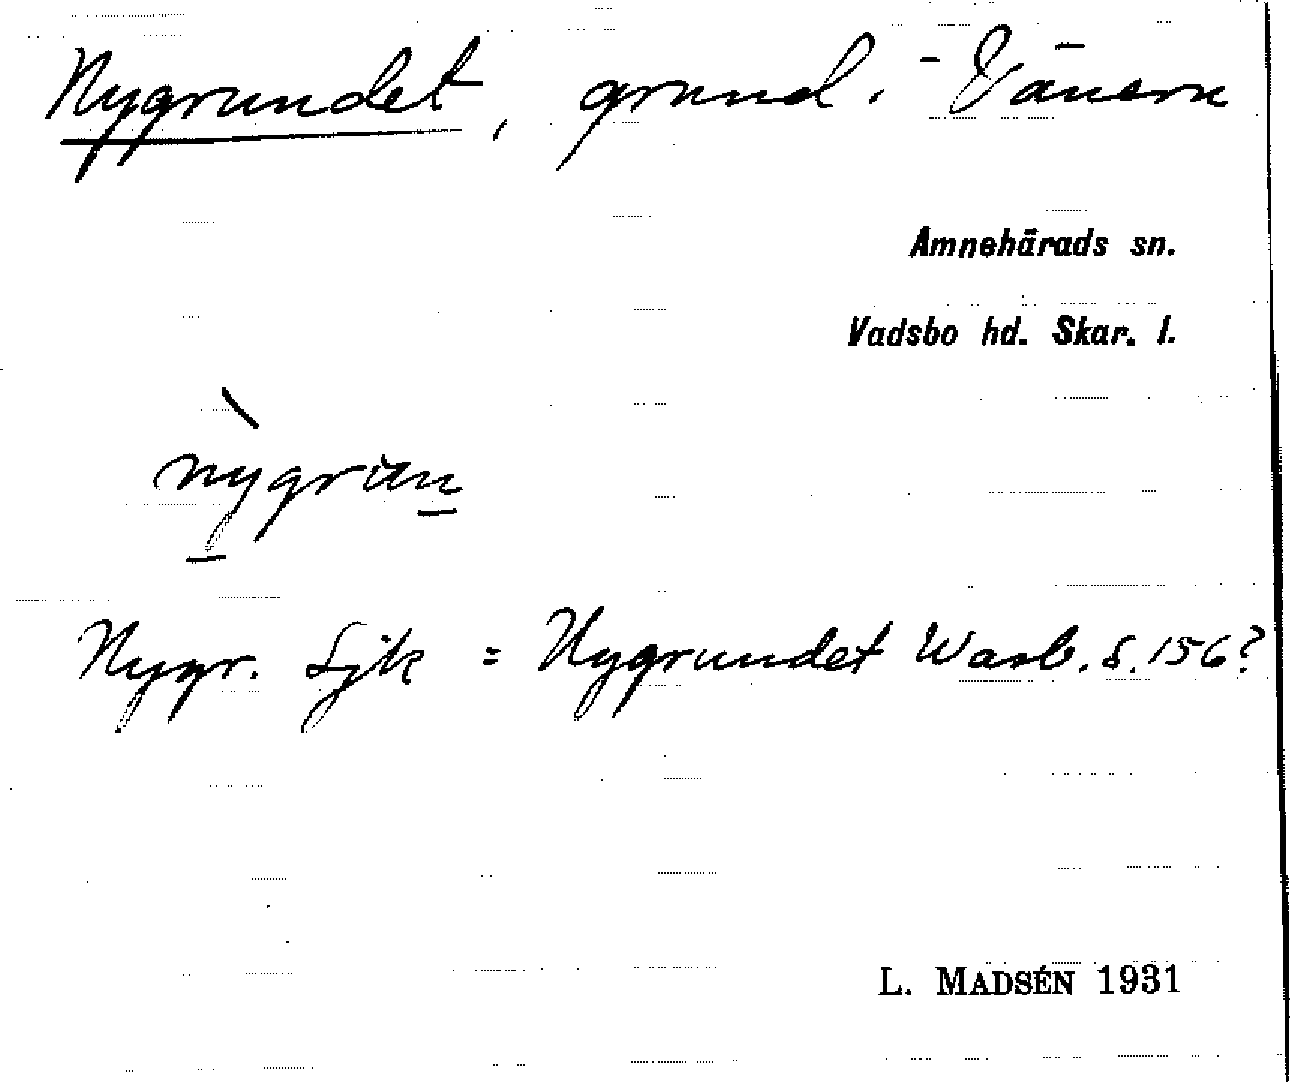 Nygrundet, grund i Vänern
Amnehärads sn.
Vadsbo hd. Skar. l.
nygrun
Nygr. Sjk = Nygrundet Warb. s. 156?
L. MADSÉN 1931